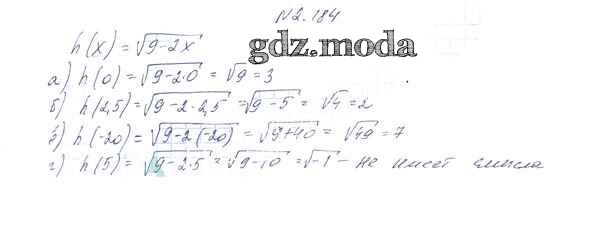 N2.184
h(x) = √9-2x
gdz.moda
а) h(0) = √9-2·0 = √9 = 3
б) h(2,5) = √9-2·2,5 = √9-5 = √4 = 2
в) h(-20) = √9-2(-20) = √9+40 = √49 = 7
г) h(5) = √9-2·5 = √9-10 = √-1 - не имеет смысла